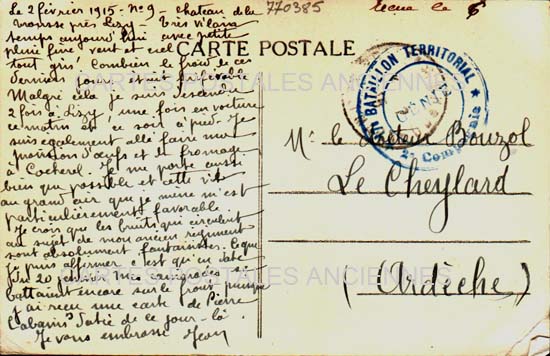 Le 2 février 1915 - N° 9 - Chateau de la
Trousse près Lizy - Très vilain
temps aujourd'hui avec petite
pluie fine vent et ciel
tout gris. Combien le froid de ces
derniers jours était préférable
Malgré cela je suis
2 fois à Lizy, une fois en voiture
ce matin et ce soir à pied. Je
suis également allé faire une
provision d'œufs et de fromage
à Cocherel. Je me porte aussi
bien que possible et cette vie
au grand air que je mène m'est
particulièrement favorable
Je crois que les bruits qui circulent
au sujet de mon ancien régiment
sont absolument fantaisistes. Ce que
je puis affirmer c'est qu'en date
du 20 janvier mes camarades se
battaient encore sur le front puisque
j'ai reçu une carte de Pierre
Cabanis datée de ce jour-là.
Je vous embrasse Jean
770385
CARTE POSTALE
BATAILLON TERRITORIAL
2e Compagnie
M. le Docteur Bouzol
Le Cheylard
(Ardèche)
CARTES POSTALES ANCIENNES
CARTES POSTALES ANCIENNES